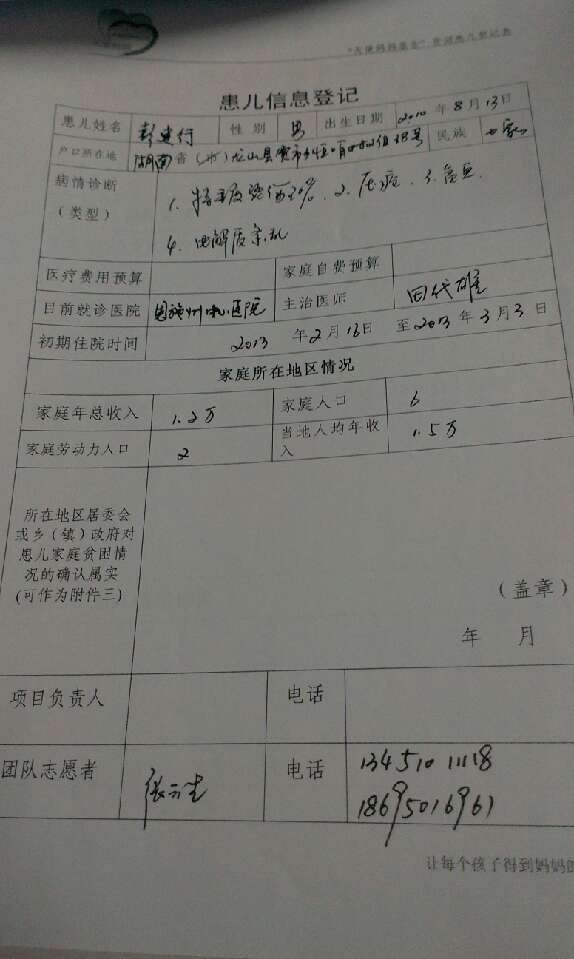 患儿信息登记
患儿姓名 彭建行 性别 男 出生日期 2010年8月13日
户口所在地 湖南省（市）龙山县 民族
病情诊断
（类型） 1. 特重度烧伤 2. 3.
4. 电解质紊乱
医疗费用预算 家庭自费预算
目前就诊医院 恩施州中心医院 主治医师 田代雄
初期住院时间 2013年2月16日 至2013年3月3日
家庭所在地区情况
家庭年总收入 1.2万 家庭人口 6
家庭劳动力人口 2 当地人均年收入 1.5万
所在地区居委会
或乡（镇）政府对
患儿家庭贫困情
况的确认属实
(可作为附件三)
（盖章）
年 月
项目负责人 电话
团队志愿者 电话 13451011118
18695016961
让每个孩子得到妈妈的